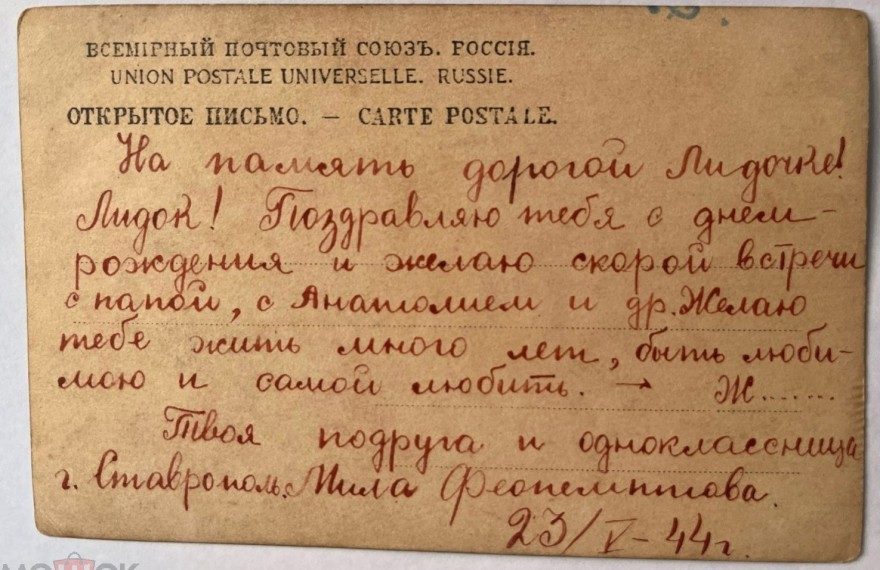 ВСЕМІРНЫЙ ПОЧТОВЫЙ СОЮЗЪ. РОССІЯ.
UNION POSTALE UNIVERSELLE. RUSSIE.
ОТКРЫТОЕ ПИСЬМО. — CARTE POSTALE.
На память дорогой Лидочке!
Лидок! Поздравляю тебя с днем-
рождения и желаю скорой встречи
с папой, с Анатолием и др. Желаю
тебе жить много лет, быть люби-
мою и самой любить. → Ж.......
Твоя подруга и одноклассница
г. Ставрополь. Мила Феопемптова.
23/V-44г.